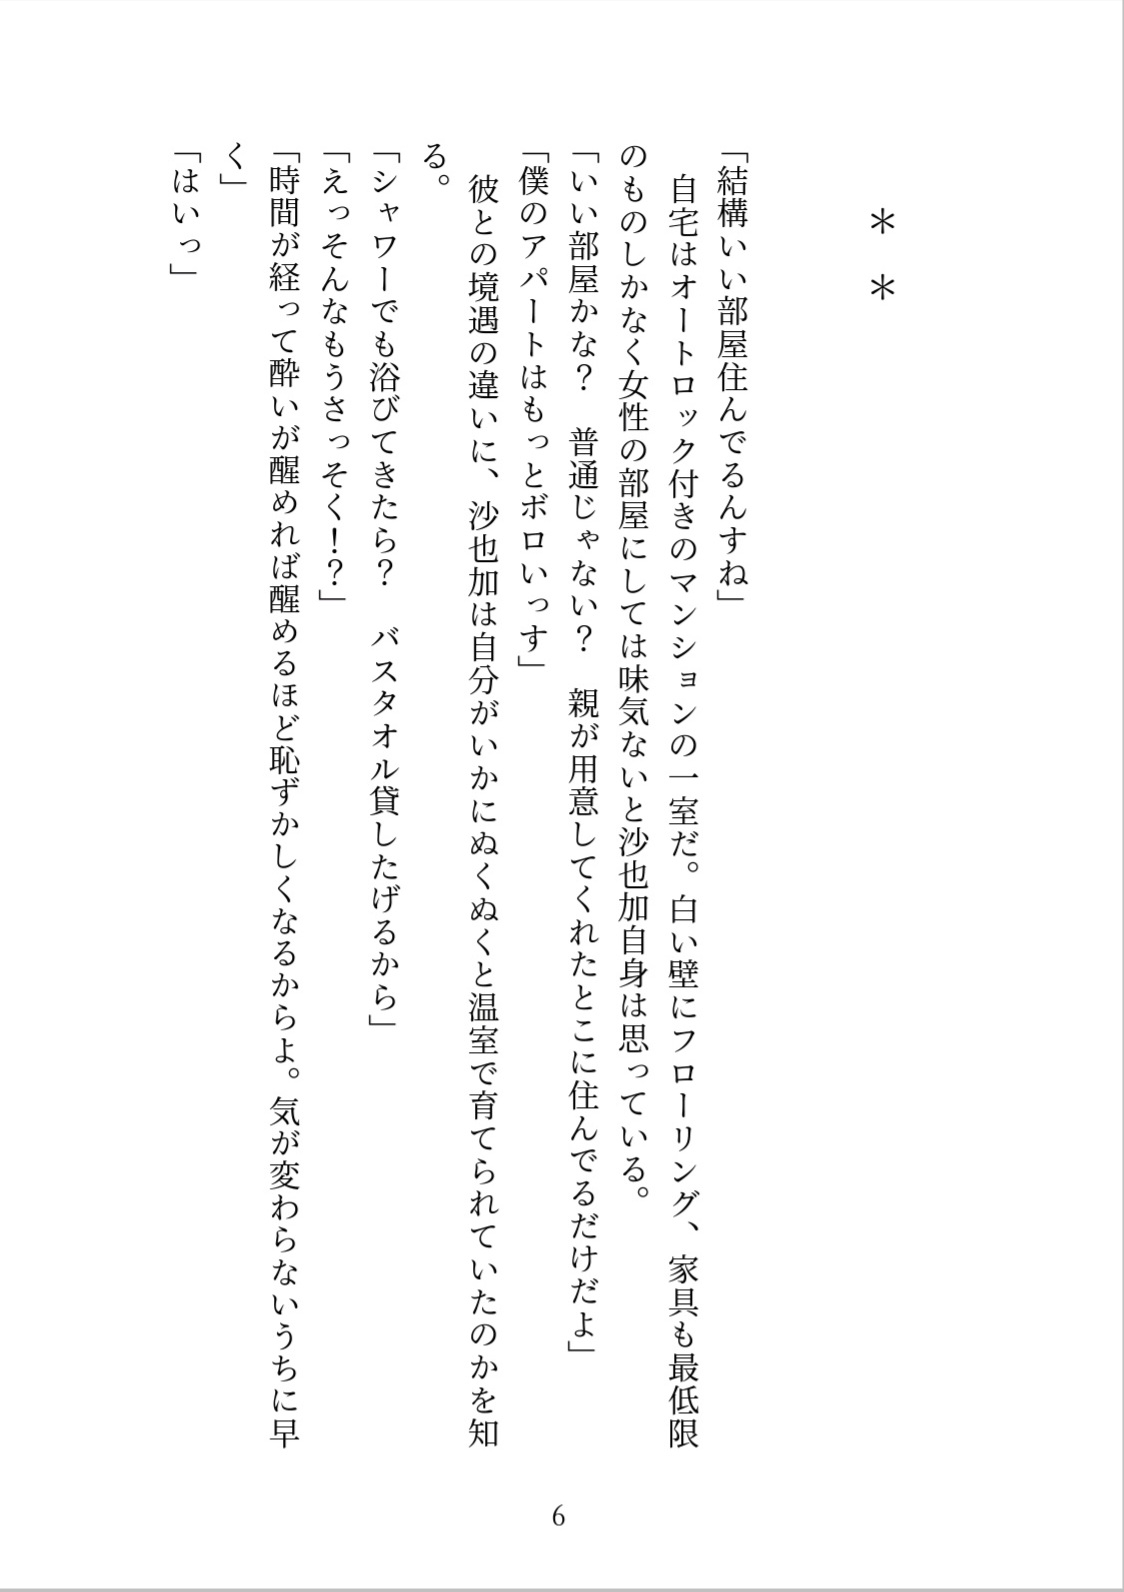 ＊　＊
「結構いい部屋住んでるんすね」
　自宅はオートロック付きのマンションの一室だ。白い壁にフローリング、家具も最低限
のものしかなく女性の部屋にしては味気ないと沙也加自身は思っている。
「いい部屋かな？　普通じゃない？　親が用意してくれたとこに住んでるだけだよ」
「僕のアパートはもっとボロいっす」
　彼との境遇の違いに、沙也加は自分がいかにぬくぬくと温室で育てられていたのかを知
る。
「シャワーでも浴びてきたら？　バスタオル貸したげるから」
「えっそんなもうさっそく！？」
「時間が経って酔いが醒めれば醒めるほど恥ずかしくなるからよ。気が変わらないうちに早
く」
「はいっ」
6